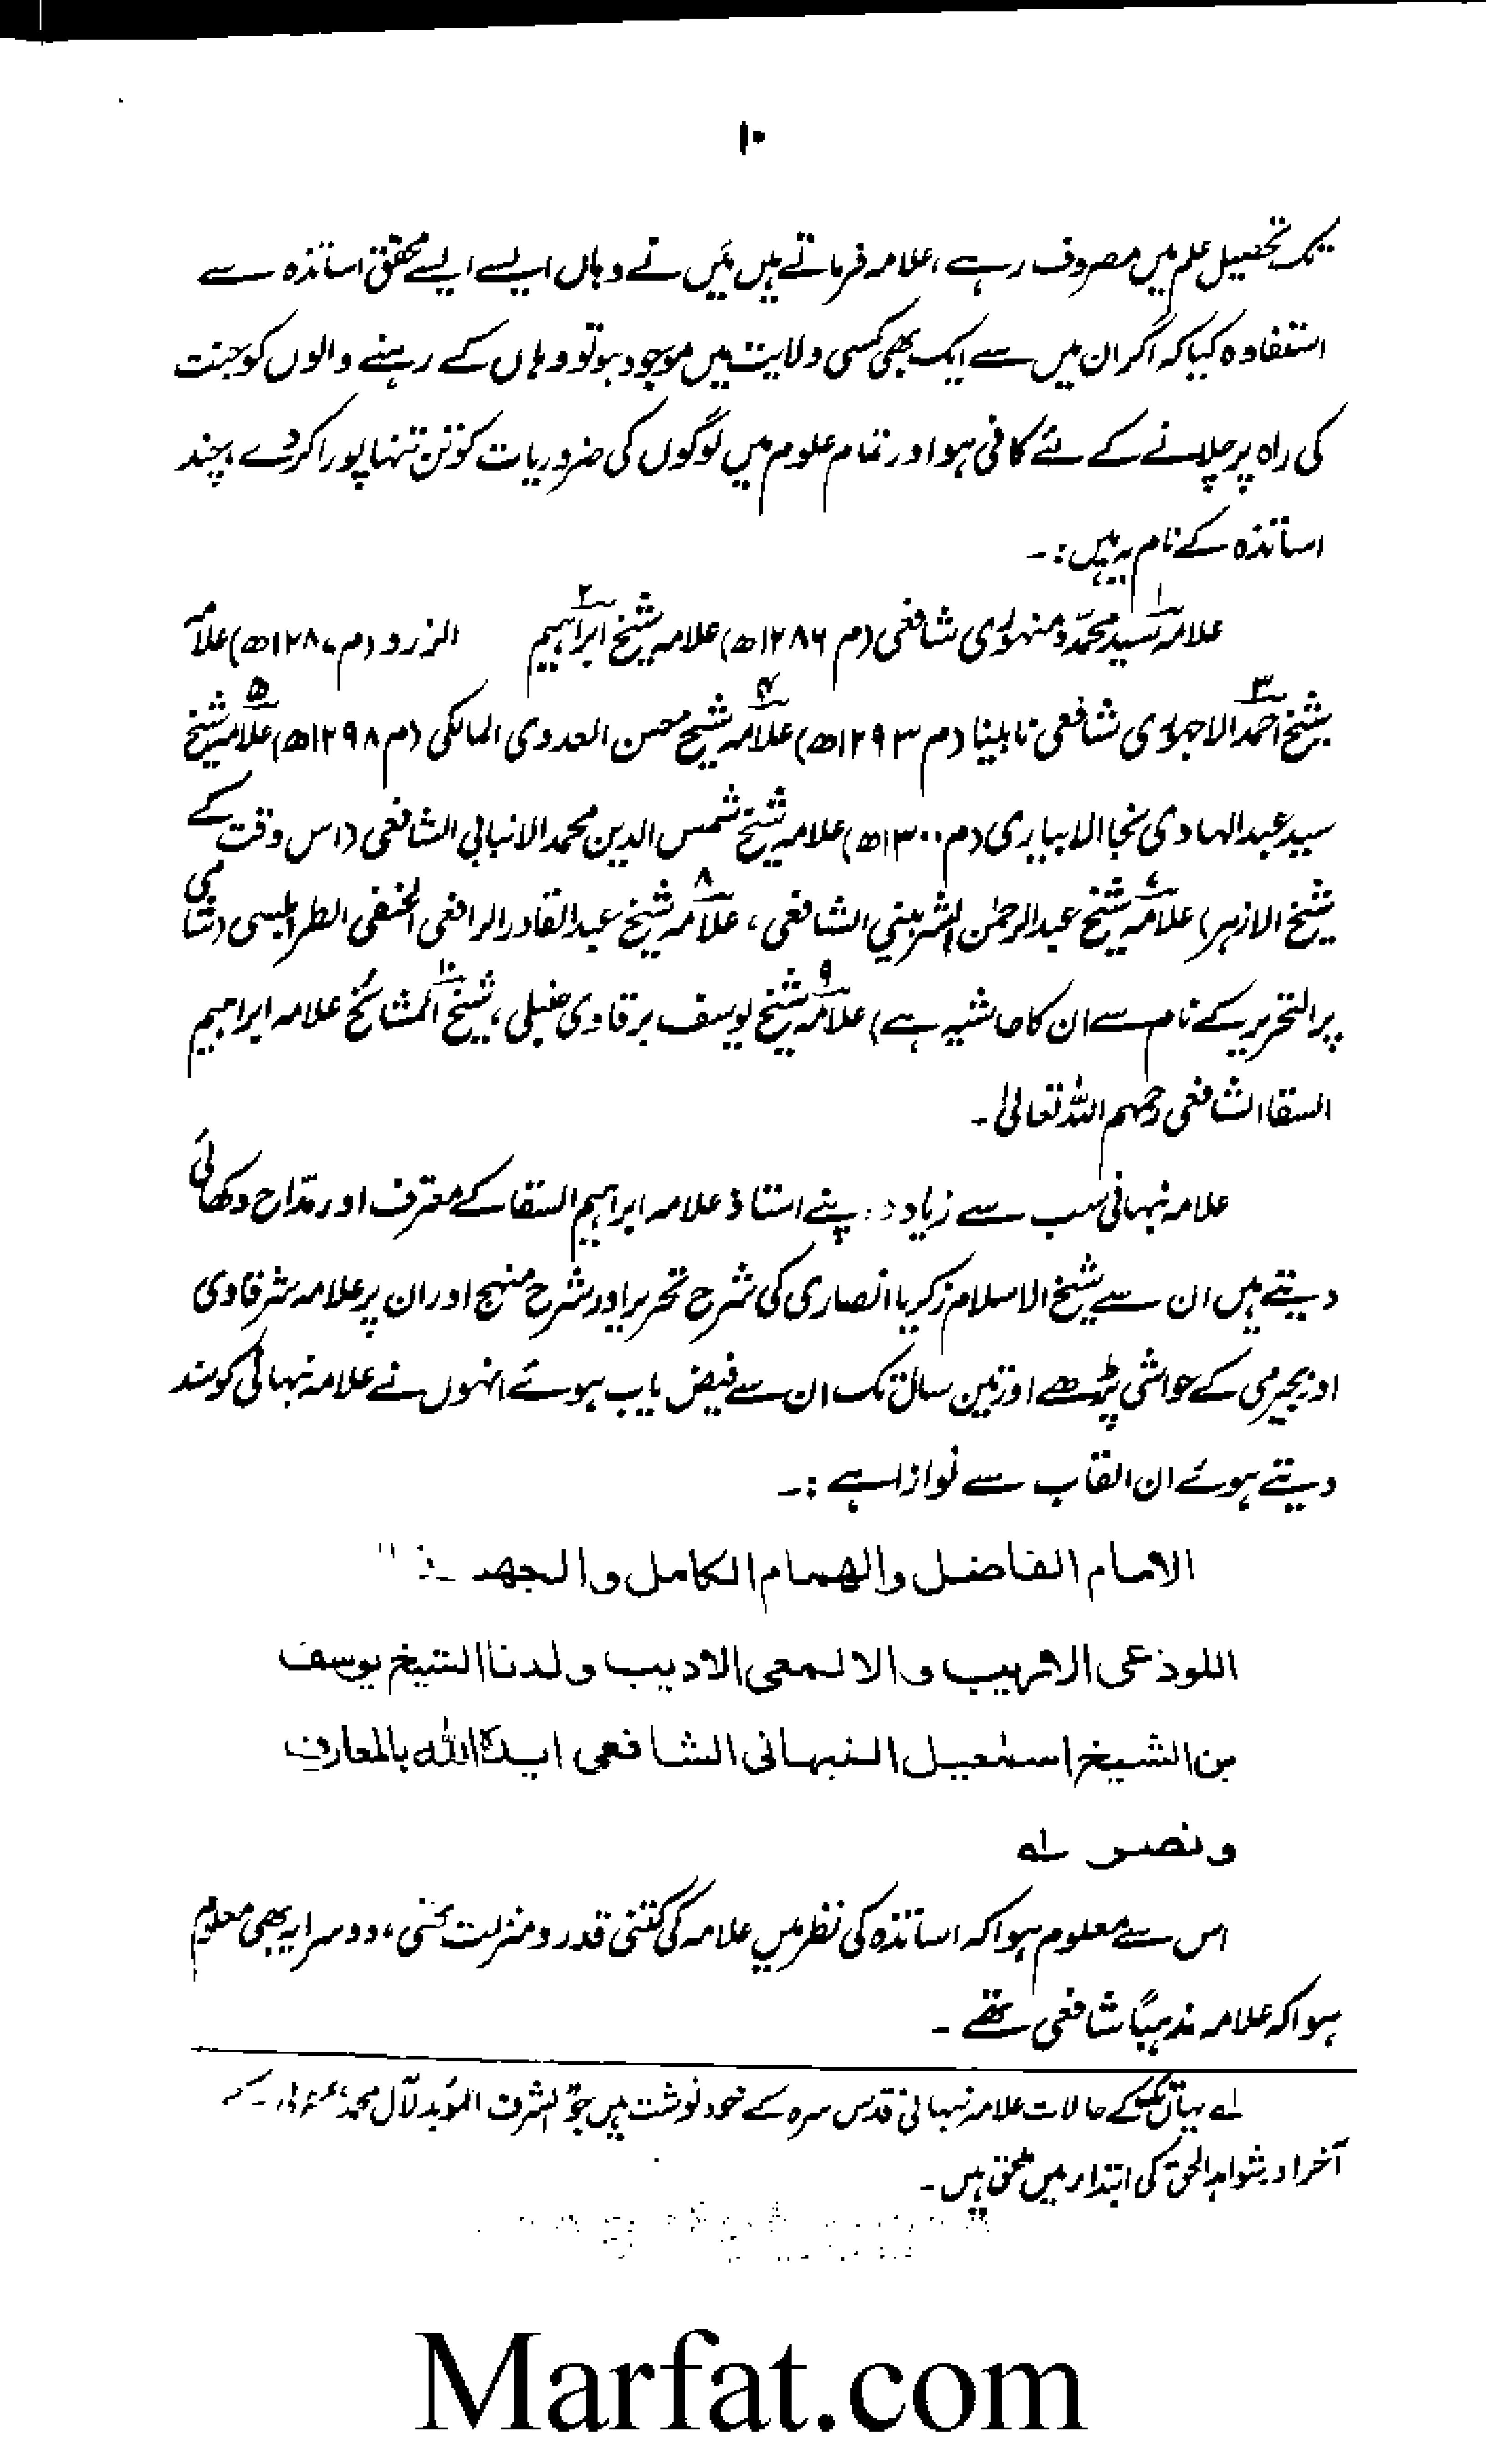 ۱۰
تک تحصیل علم میں مصروف رہے، علامہ فرماتے ہیں میَں نے وہاں ایسے ایسے محقق اساتذہ سے
استفادہ کیا کہ اگر ان میں سے ایک بھی کسی ولایت میں موجود ہو تو وہاں کے رہنے والوں کو جنت
کی راہ پر چلانے کے لئے کافی ہو اور تمام علوم میں لوگوں کی ضروریات کو تن تنہا پورا کر دے، چند
اساتذہ کے نام یہ ہیں :۔
۱ علامہ سید محمد دمنہوری شافعی (م ۱۲۸۶ھ) ۲ علامہ شیخ ابراہیم الزرو (م ۱۲۸۷ھ) علامہ
۳ شیخ احمد الاجہوری شافعی نابینا (م ۱۲۹۳ھ) ۴ علامہ شیخ حسن العدوی المالکی (م ۱۲۹۸ھ) ۵ علامہ شیخ
سید عبدالہادی نجا الابیاری (م ۱۳۰۰ھ) علامہ شیخ شمس الدین محمد الانبابی الشافعی (اس وقت کے
شیخ الازہر) ۷ علامہ شیخ عبدالرحمٰن الشربینی الشافعی، ۸ علامہ شیخ عبدالقادر الرافعی الحنفی الطرابلسی (شامی
پر التحریر کے نام سے ان کا حاشیہ ہے) ۹ علامہ شیخ یوسف برقاوی حنبلی، ۱۰ شیخ المشائخ علامہ ابراہیم
السقا الشافعی رحمہم اللہ تعالیٰ۔
علامہ نبہانی سب سے زیادہ اپنے استاذ علامہ ابراہیم السقا کے معترف اور مدّاح دکھائی
دیتے ہیں ان سے شیخ الاسلام زکریا انصاری کی شرح تحریر اور شرح منہج اور ان پر علامہ شرقاوی
اور بجیرمی کے حواشی پڑھے اور تین سال تک ان سے فیض یاب ہوئے انہوں نے علامہ نبہانی کو سند
دیتے ہوئے ان القاب سے نوازا ہے :۔
الامام الفاضل والهمام الكامل والجهبذ
اللوذعی الاریب والالمعی الادیب ولدنا الشیخ یوسف
بن الشیخ اسمٰعیل النبهانی الشافعی ایده الله بالمعارف
ونصر لہ
اس سے معلوم ہوا کہ اساتذہ کی نظر میں علامہ کی کتنی قدر و منزلت تھی، دوسرا یہ بھی معلوم
ہوا کہ علامہ مذہباً شافعی تھے ۔
لہ یہاں تک کے حالات علامہ نبہانی قدس سرہ کے خود نوشت ہیں جو الشرف المؤبد لآل محمد کے
آخر اور شواہد الحق کی ابتداء میں ملحق ہیں۔
Marfat.com